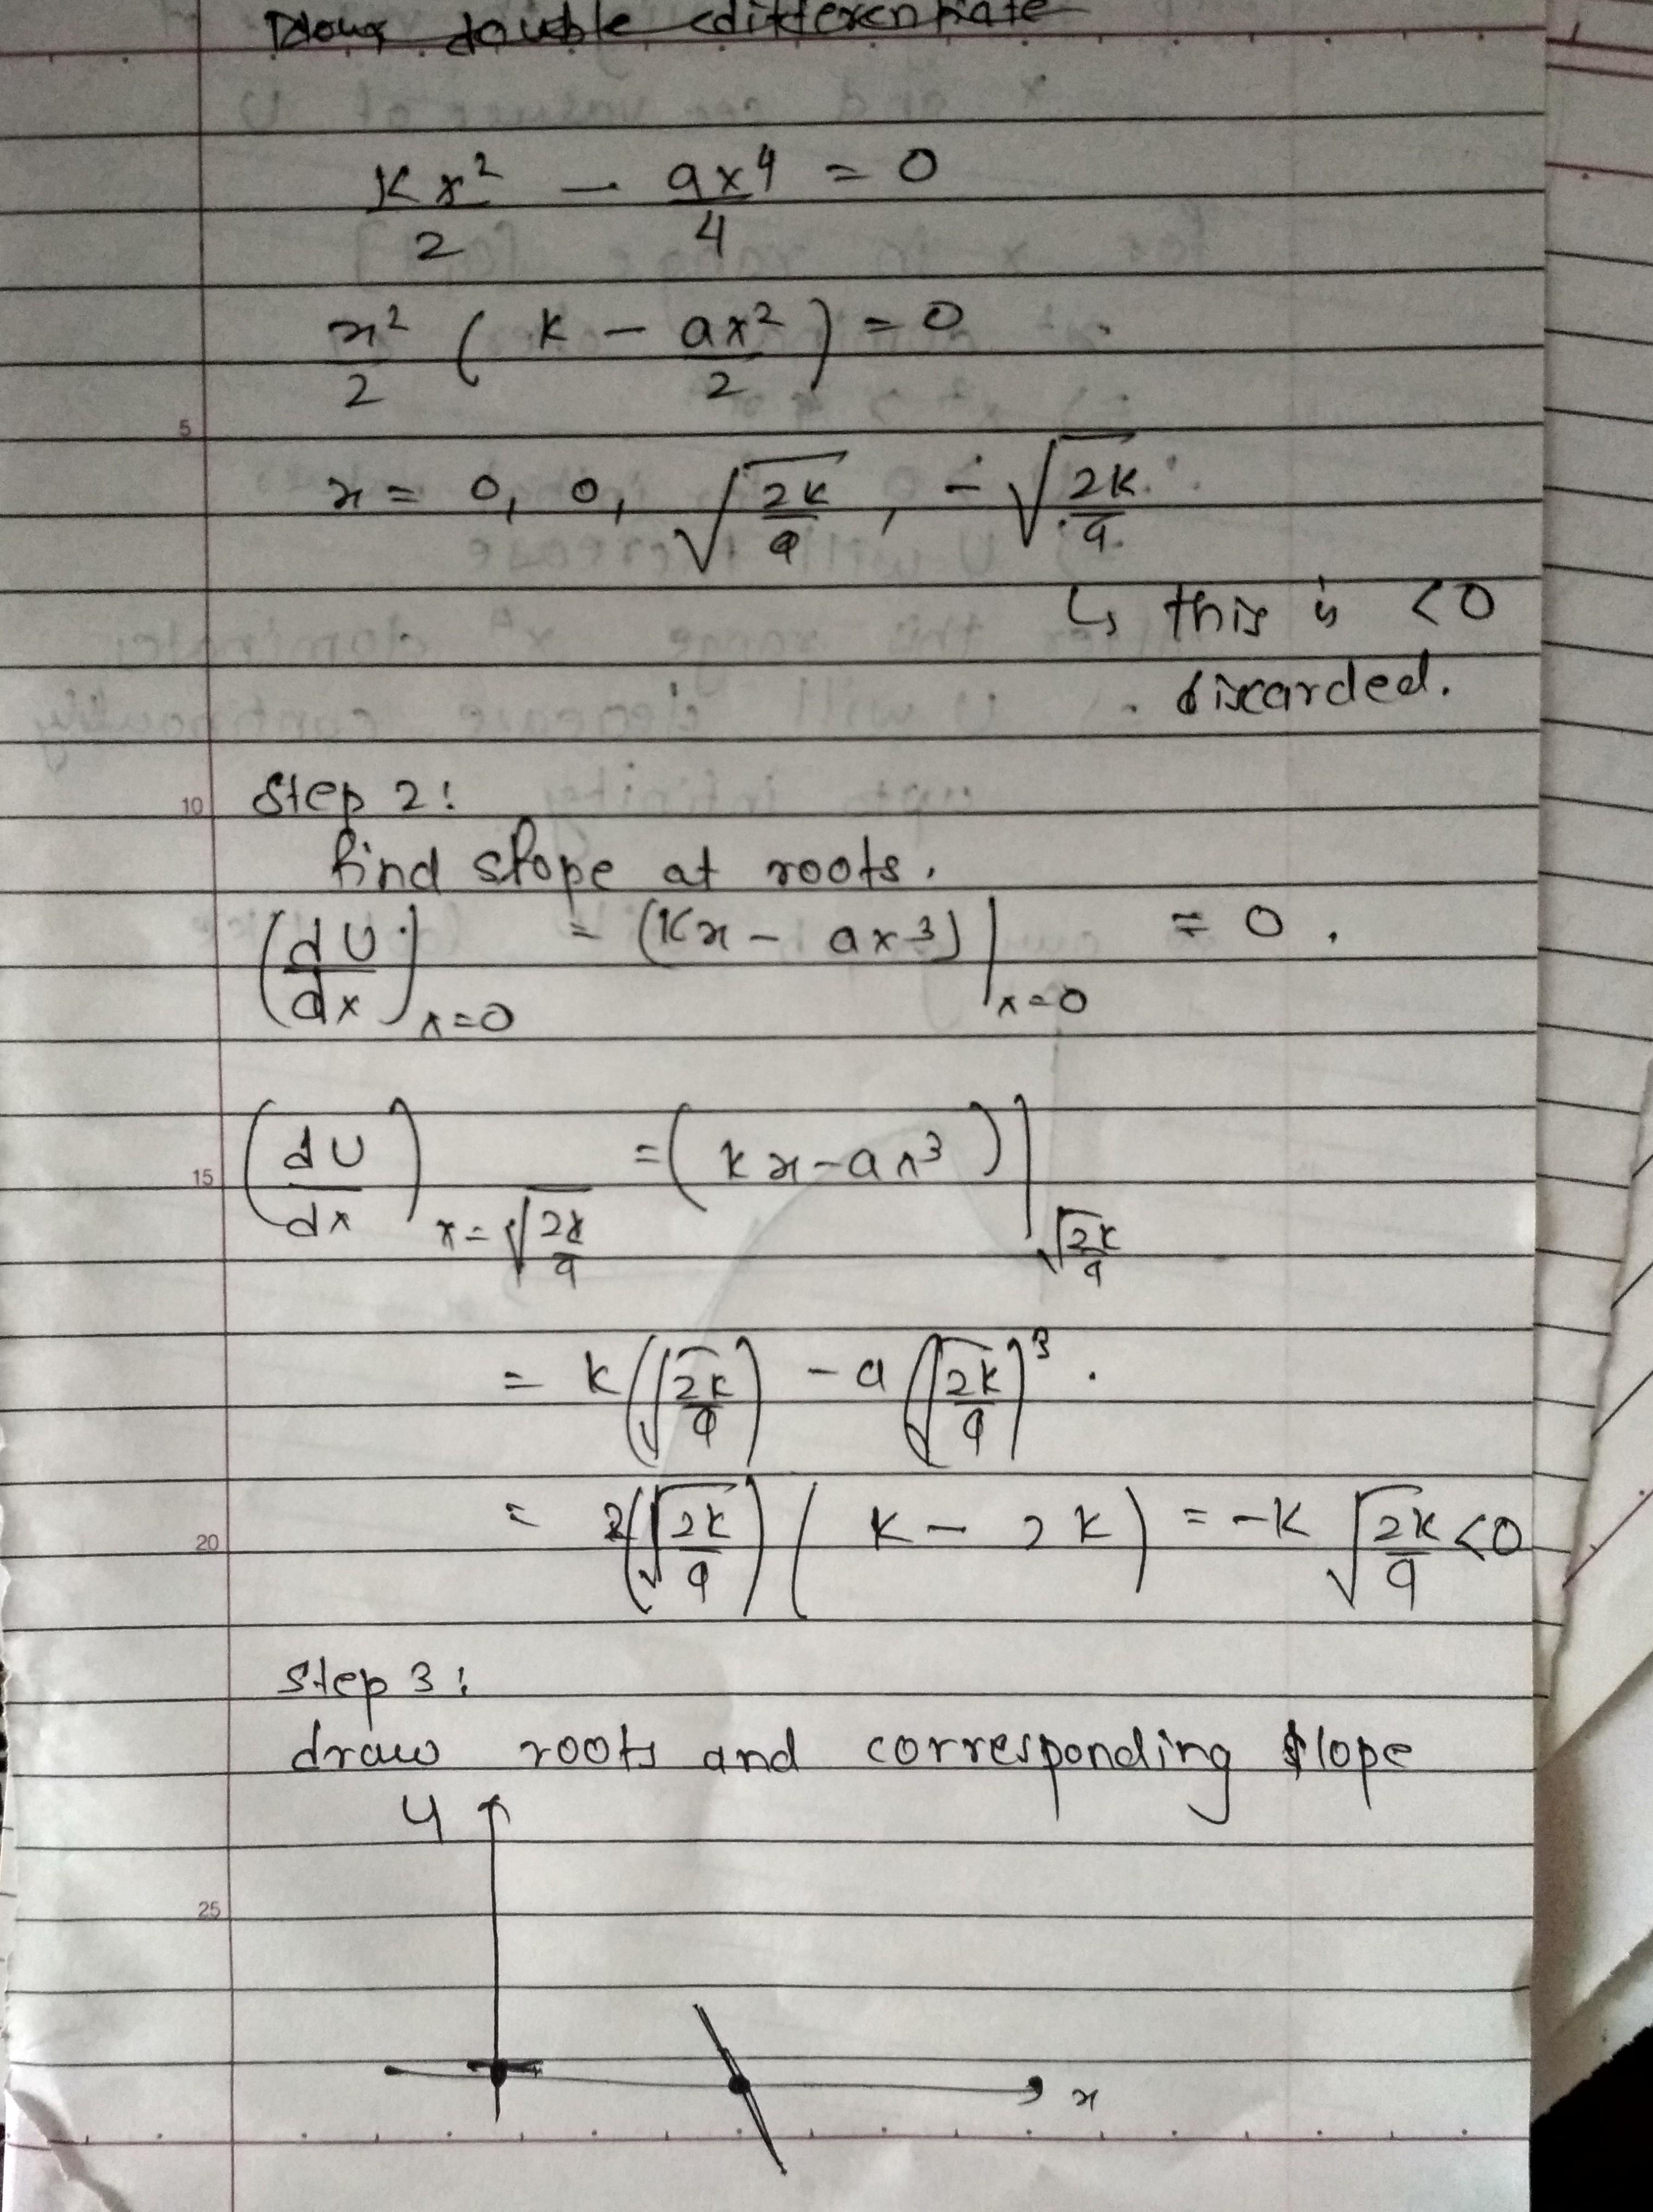 double differentiate
Kx²/2 - ax⁴/4 = 0
x²/2 ( k - ax²/2 ) = 0
5
x = 0, 0, √(2k/a), -√(2k/a)
↳ this is <0
discarded.
10 Step 2:
find slope at roots.
(dU/dx)ₓ₌₀ = (Kx - ax³)|ₓ₌₀ = 0.
15 (dU/dx) x=√(2k/a) = (kx-ax³)| √(2k/a)
= k(√(2k/a)) - a(√(2k/a))³.
20 = (√(2k/a)) (k - 2k) = -k √(2k/a) <0
Step 3:
draw roots and corresponding slope
U
25
x